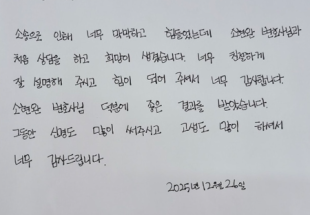 소송으로 인해 너무 막막하고 힘들었는데 소현완 변호사님과
처음 상담을 하고 희망이 생겼습니다. 너무 친절하게
잘 설명해 주시고 힘이 되어 주셔서 너무 감사합니다
소현완 변호사님 덕분에 좋은 결과를 받았습니다.
그동안 신경도 많이 써주시고 고생도 많이 하셔서
너무 감사드립니다.
2025년 12월 26일